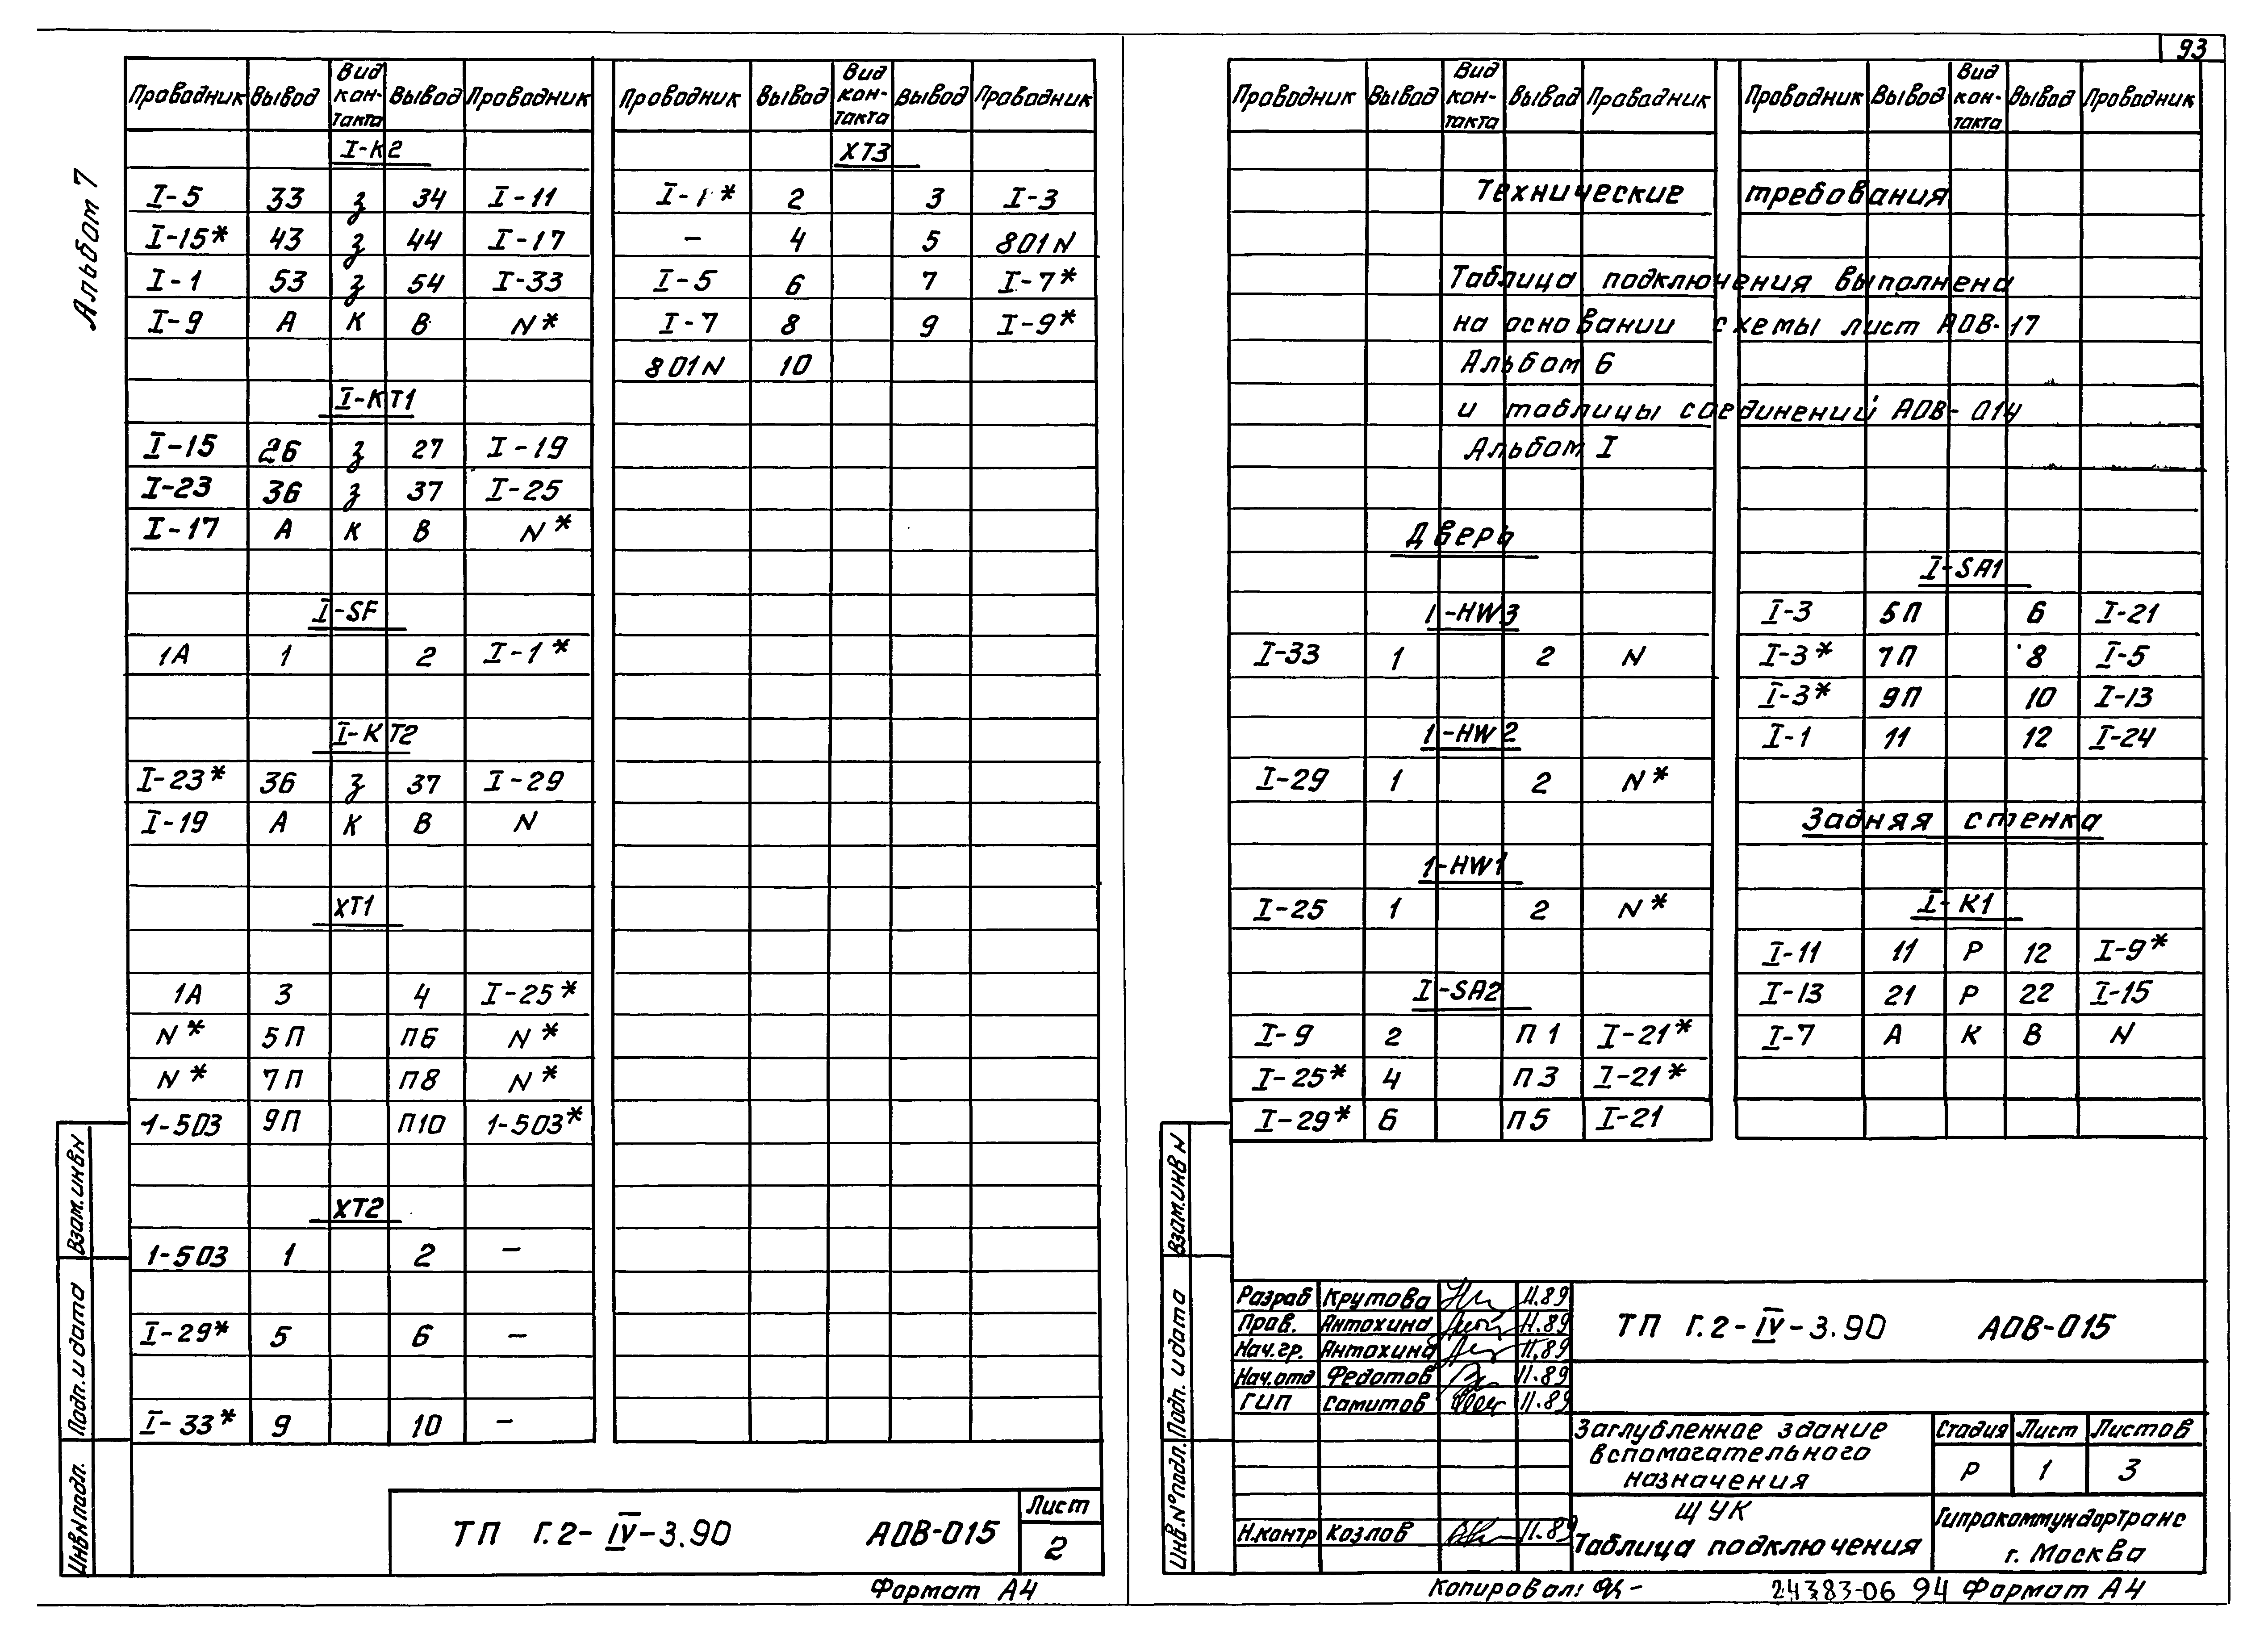 93
Альбом 7
Проводник Вывод Вид контакта Вывод Проводник
I-К2
I-5 33 з 34 I-11
I-15* 43 з 44 I-17
I-1 53 з 54 I-33
I-9 А К В N*
I-КТ1
I-15 26 з 27 I-19
I-23 36 з 37 I-25
I-17 А К В N*
I-SF
1А 1 2 I-1*
I-КТ2
I-23* 36 з 37 I-29
I-19 А К В N
ХТ1
1А 3 4 I-25*
N* 5П П6 N*
N* 7П П8 N*
1-503 9П П10 1-503*
ХТ2
1-503 1 2 –
I-29* 5 6 –
I-33* 9 10 –
Проводник Вывод Вид кон-такта Вывод Проводник
ХТ3
I-1* 2 3 I-3
– 4 5 801N
I-5 6 7 I-7*
I-7 8 9 I-9*
801N 10
Взам.инв.N
Подп. и дата
Инв.N подл.
ТП Г.2-IV-3.90 АОВ-015
Лист
2
Формат А4
Проводник Вывод Вид кон-такта Вывод Проводник
Проводник Вывод Вид кон-такта Вывод Проводник
Технические требования
Таблица подключения выполнена
на основании схемы лист АОВ-17
Альбом 6
и таблицы соединений АОВ-014
Альбом I
Дверь
1-HW3
I-33 1 2 N
1-HW2
I-29 1 2 N*
1-HW1
I-25 1 2 N*
I-SA2
I-9 2 П1 I-21*
I-25* 4 П3 I-21*
I-29* 6 П5 I-21
I-SA1
I-3 5П 6 I-21
I-3* 7П 8 I-5
I-3* 9П 10 I-13
I-1 11 12 I-24
Задняя стенка
I-К1
I-11 11 Р 12 I-9*
I-13 21 Р 22 I-15
I-7 А К В N
Взам.инв N
Подп. и дата
Инв.N°подл.
Разраб Крутова 11.89
Пров. Антохина 11.89
Нач.гр. Антохина 11.89
Нач.отд Федотов 11.89
ГИП Самитов 11.89
Н.контр Козлов 11.89
ТП Г.2-IV-3.90 АОВ-015
Заглубленное здание
вспомогательного
назначения
Стадия Лист Листов
Р 1 3
ЩУК
Таблица подключения
Гипрокоммундортранс
г. Москва
Копировал:
24383-06 94 Формат А4